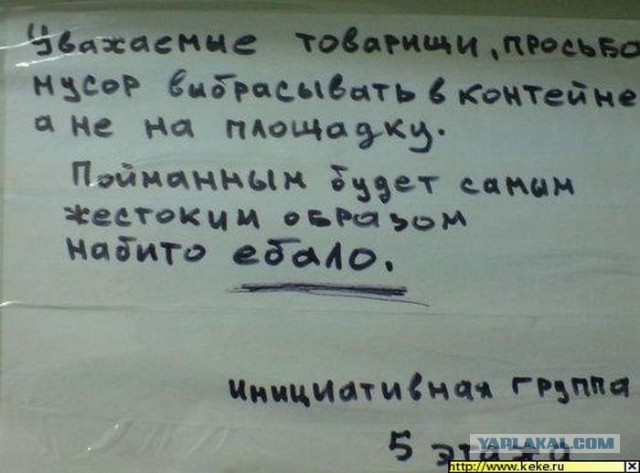 Уважаемые товарищи, просьба
мусор выбрасывать в контейне
а не на площадку.
Пойманным будет самым
жестоким образом
набито ебало.
инициативная группа
5 этажа
YAPLAKAL.COM
http://www.keke.ru